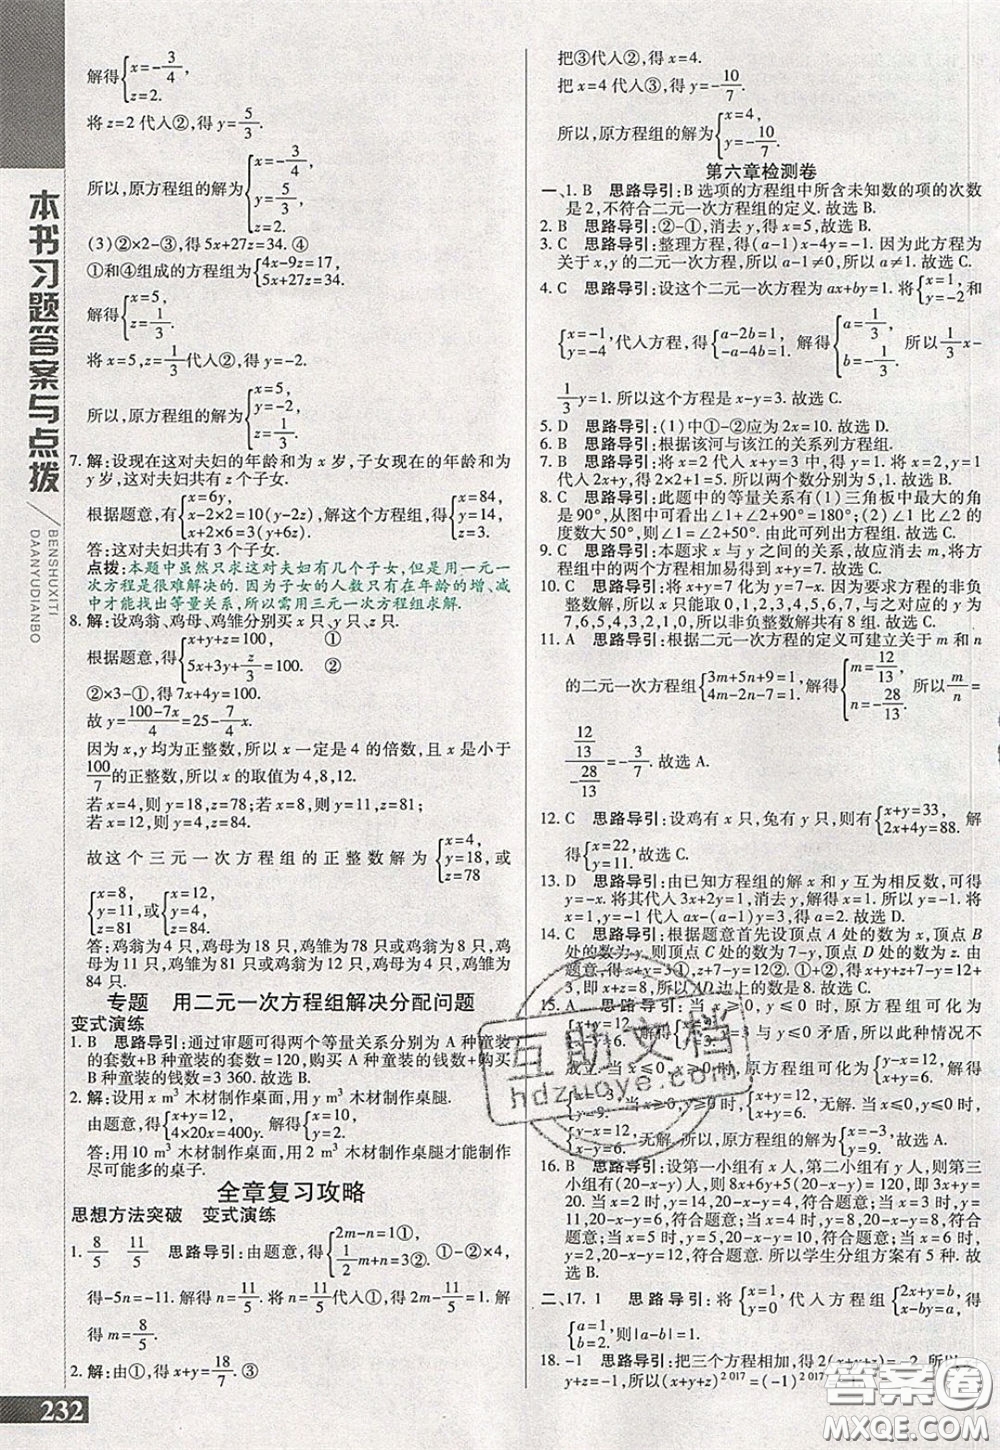 本书习题答案与点拨
BENSHUXITI
DAANYUDIANBO
解得{x=-3/4, z=2.
将 z=2 代入②,得 y=5/3.
所以,原方程组的解为{x=-3/4, y=5/3, z=2.
(3)②×5+③,得 5x+27z=34. ④
①和④组成的方程组为{4x-9z=17, 5x+27z=34.
解得{x=5, z=1/3.
将 x=5,z=1/3 代入②,得 y=-2.
所以,原方程组的解为{x=5, y=-2, z=1/3.
7. 解:设现在这对夫妇的年龄和为 x 岁,子女现在的年龄和为
y 岁,这对夫妇共有 z 个子女.
根据题意,有{x=6y, x-2×2=10(y-2z), x+2×6=3(y+6z). 解这个方程组,得{x=84, y=14, z=3.
答:这对夫妇共有 3 个子女.
点拨:本题中虽然只求这对夫妇有几个子女,但是用一元一
次方程是很难解决的. 因为子女的人数只有在年龄的增、
减中才能找出等量关系,所以需用三元一次方程组求解.
8. 解:设鸡翁、鸡母、鸡雏分别买 x 只、y 只、z 只.
根据题意,得{x+y+z=100, ① 5x+3y+z/3=100. ②
②×3-①,得 7x+4y=100.
故 y=(100-7x)/4=25-7/4 x.
因为 x,y 均为正整数,所以 x 一定是 4 的倍数,且 x 是小于
100/7的正整数,所以 x 的取值为 4,8,12.
若 x=4,则 y=18,z=78;若 x=8,则 y=11,z=81;
若 x=12,则 y=4,z=84.
故这个三元一次方程组的正整数解为{x=4, y=18, z=78 或
{x=8, y=11, z=81 或{x=12, y=4, z=84.
答:鸡翁为 4 只,鸡母为 18 只,鸡雏为 78 只或鸡翁为 8 只,鸡
母为 11 只,鸡雏为 81 只或鸡翁为 12 只,鸡母为 4 只,鸡雏为
84 只.
专题 用二元一次方程组解决分配问题
变式演练
1. B 思路导引:通过审题可得两个等量关系分别为 A 种童装
的套数+B 种童装的套数=120,购买 A 种童装的钱数+购买
B 种童装的钱数=3 360.故选 B.
2. 解:设用 x m³ 木材制作桌面,用 y m³ 木材制作桌腿.
由题意,得{x+y=12, 4×20x=400y. 解得{x=10, y=2.
答:用 10 m³ 木材制作桌面,用 2 m³ 木材制作桌腿才能制作
尽可能多的桌子.
全章复习攻略
思想方法突破 变式演练
1. 8/5 11/5 思路导引:由题意,得{2m-n=1①, 1/2m-n=-②. ①-②×4,
得-5n=-11. 解得 n=11/5. 将 n=11/5代入①,得 2m-11/5=1. 解
得 m=8/5.
2. 解:由①,得 x+y=18/7. ③
232
把③代入②,得 x=4.
把 x=4 代入③,得 y=-10/7.
所以,原方程组的解为{x=4, y=-10/7.
第六章检测卷
一、1. B 思路导引:B 选项的方程组中所含未知数的项的次数
是 2,不符合二元一次方程组的定义. 故选 B.
2. B 思路导引:②-①,消去 y,得 x=5,故选 B.
3. C 思路导引:整理方程,得(a-1)x-4y=-1. 因为此方程为
关于 x,y 的二元一次方程,所以 a-1≠0,所以 a≠1.故选 C.
4. C 思路导引:设这个二元一次方程为 ax+by=1. 将{x=1, y=-2 和
{x=-1, y=-4 代入方程,得{a-2b=1, -a-4b=1. 解得{a=1/3, b=-1/3. 所以1/3x-
1/3y=1. 所以这个方程是 x-y=3. 故选 C.
5. D 思路导引:(1)中①-②应为 2x=10. 故选 D.
6. B 思路导引:根据该河与该江的关系列方程组.
7. B 思路导引:将 x=2 代入 x+y=3,得 y=1. 将 x=2,y=1
代入,得 2×2+1=5. 所以两个数分别为 5,1. 故选 B.
8. C 思路导引:此题中的等量关系有(1)三角板中最大的角
是 90°,从图中可看出∠1+∠2+90°=180°;(2)∠1 的度数比
∠2 的度数大 50°,所以∠1=∠2+50°. 由此可列出方程组. 故选 C.
9. C 思路导引:本题求 x 与 y 之间的关系,故应消去 m,将方
程组中的两个方程相加易得到 x+y=1. 故选 C.
10. C 思路导引:将 x+y=7 化为 y=7-x,因为要求方程的非负
整数解,所以 x 可以取 0,1,2,3,4,5,6,7,与之对应的 y 为
7,6,5,4,3,2,1,0,所以非负整数解共有 8 组. 故选 C.
11. A 思路导引:根据二元一次方程的定义可建立关于 m 和 n
的二元一次方程组{3m+5n+9=1, 4m-2n-7=1. 解得{m=12/13, n=-28/13. 所以m/n=
(12/13)/(-28/13)=-3/7. 故选 A.
12. C 思路导引:设鸡有 x 只,兔有 y 只,则有{x+y=33, 2x+4y=88. 解
得{x=22, y=11. 故选 C.
13. D 思路导引:由已知方程组的解 x 与 y 互为相反数,可得
y=-x. 将其代入 3x+2y=1,消去 y,解得 x=1. 所以 y=-1. 将
x=1,y=-1 代入 得 . 故选 D.
14. C 思路导引:根据题意首先设顶点 A 处的数为 x,顶点 B
处的数为 y,则顶点 C 处的数为 7-y,顶点 D 处的数为
所以 AD 边上的数是 8. 故选 C.
15. A 思路导引:当 x≥0,y≤0 时,原方程组可化为
与 y≤0 矛盾,所以此种情况不
原方程组可化为{y-x=-3, y-2x=6.
当 x≤0,y≤0
无解. 所以方程组的解为{x=-3, y=9. 故选 A.
16. B 思路导引:设第一小组有 x 人,第二小组有 y 人,则第三
小组有(20-x-y)人,则 8x+6y+5(20-x-y)=120,3x+y=
20. 当 x=2 时,y=14,20-x-y=4,符合题意;当 x=3 时,
y=11,20-x-y=6,符合题意;当 x=4 时,y=8,20-x-y=8,
符合题意;当 x=5 时,y=5,20-x-y=10,符合题意;当 x=6 时,
y=2,20-x-y=12,符合题意. 所以学生分组方案有 5 种. 故
选 B.
二、17. 1 思路导引:将{x=1, y=0 代入方程组{2x+y=b, x-by=a 得
{a=1, b=2. 则|a-b|=1.
18. -1 思路导引:把三个方程相加,得 2(x+y+z)=-2,所以
x+y+z=-1. 所以(x+y+z)²⁰¹⁷=(-1)²⁰¹⁷=-1.
互助文档
hdzuoye.com
答案圈
MXQE.COM